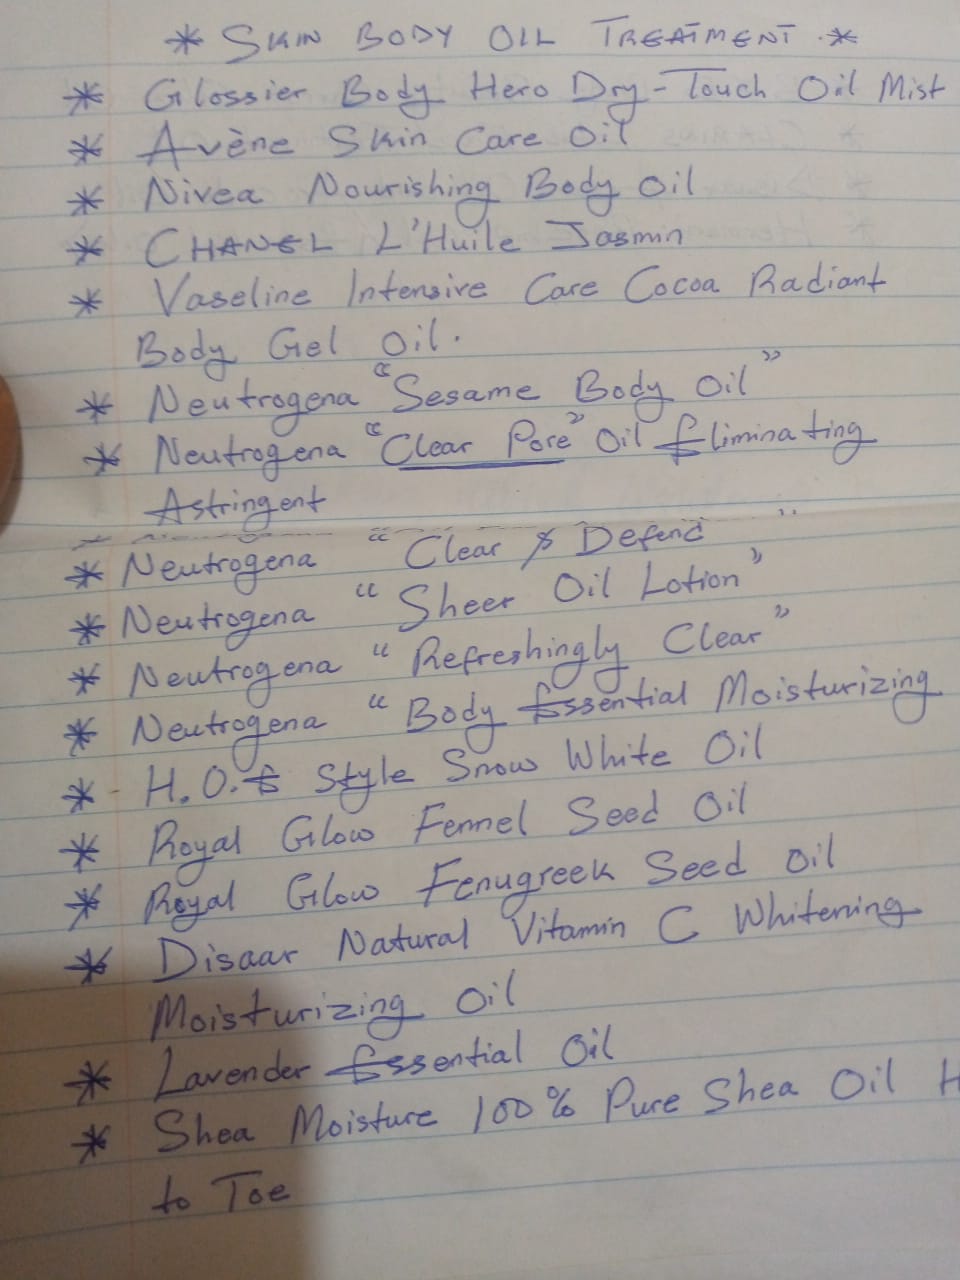 * SKIN BODY OIL TREATMENT *
* Glossier Body Hero Dry-Touch Oil Mist
* Avène Skin Care Oil
* Nivea Nourishing Body Oil
* CHANEL L'Huile Jasmin
* Vaseline Intensive Care Cocoa Radiant
Body Gel Oil.
* Neutrogena "Sesame Body Oil"
* Neutrogena "Clear Pore" Oil Eliminating
Astringent
* Neutrogena "Clear & Defend"
* Neutrogena "Sheer Oil Lotion"
* Neutrogena "Refreshingly Clear"
* Neutrogena "Body Essential Moisturizing
* H.O.E Style Snow White Oil
* Royal Glow Fennel Seed Oil
* Royal Glow Fenugreek Seed Oil
* Disaar Natural Vitamin C Whitening
Moisturizing Oil
* Lavender Essential Oil
* Shea Moisture 100% Pure Shea Oil H
to Toe